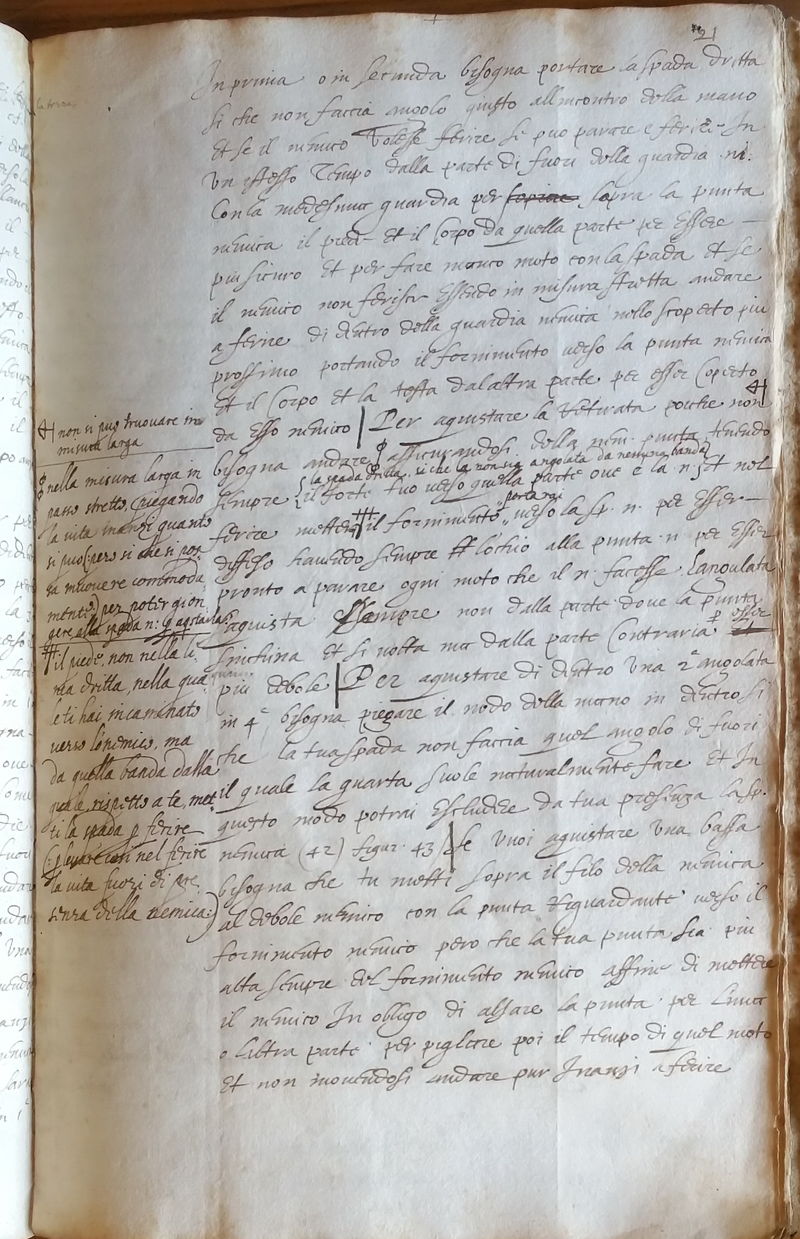 21
In prima o in seconda bisogna portare la spada dritta
si che non faccia angolo giusto all incontro della mano
et se il nemico volesse ferire si puo parare e ferire In
un istesso Tempo dalla parte di fuori della guardia ni.
Con la medesma guardia per ferire sopra la punta
nemica il piede et il Corpo da quella parte per Essere
piu sicuro Et per fare manco moto con la spada et se
il nemico non ferisce Essendo in misura stretta andare
a ferire di dentro della guardia nemica nello scoperto piu
prossimo portando il fornimento verso la punta nemica
et il Corpo et la testa dal altra parte per esser Coperto
da Esso nemico Per aquistare la poiche non
bisogna andare assicurandosi della nem. punta tenendo
la spada dritta, si che la non sia angolata da nessuna banda
sempre il forte tuo verso quella parte ove e la n. et nel
portarsi
ferire mettere il fornimento verso la sp. n. per Esser
diffeso havendo sempre l'ochio alla punta n. per Esser
pronto a parare ogni moto che il n. facesse L'angulata
s'aquista sempre non dalla parte dove la punta
s'inchina et si volta ma dalla parte Contraria p esser
piu debole Per aquistare di dentro una 2a angolata
in 4a bisogna piegare il nodo della mano in dentro si
che la tua spada non faccia quel angolo di fuori
il quale la quarta suole naturalmente fare et In
questo modo potrai Escludere da tua presenza la sp.
nemica (42) figur. 43) Se vuoi aquistare una bassa
bisogna che tu metti sopra il filo della nemica
al debole nemico con la punta riguardante verso il
fornimento nemico pero che la tua punta sia piu
alta sempre del fornimento nemico affine di mettere
il nemico In obligo di alsare la punta per l'una
o l'altra parte per pigliare poi il tempo di quel moto
Et non movendosi andare pur Inanzi a ferire
non si puo truovare in
misura larga
nella misura larga in
passo stretto, piegando
la vita inanzi quanto
si puo (pero si che si pos
sa muovere commoda
mente) per poter gion
gere alla spada n: q
il piede, non nella li
nea dritta, nella qua
le ti hai incaminato
verso l'nemico, ma
da quella banda dalla
quale, rispetto a te, met
ti la spada p ferire
nel ferire
la vita fuori di pre
senza della nemica:)